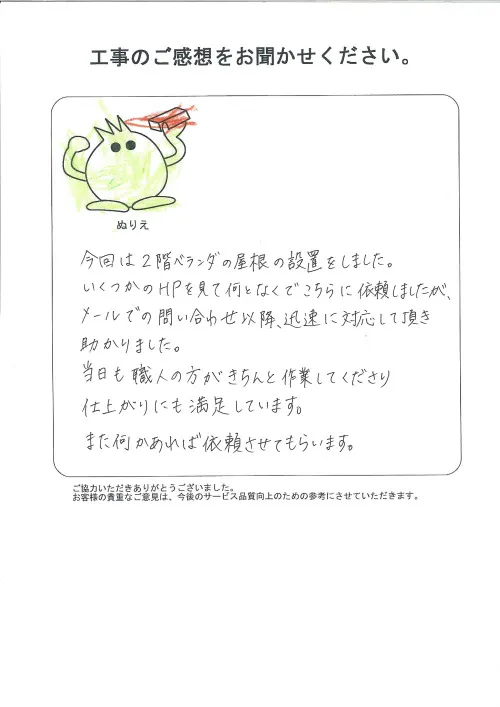 工事のご感想をお聞かせください。
ぬりえ
今回は2階ベランダの屋根の設置をしました。
いくつかのHPを見て何となくでこちらに依頼しましたが、
メールでの問い合わせ以降、迅速に対応して頂き
助かりました。
当日も職人の方がきちんと作業してくださり
仕上がりにも満足しています。
また何かあれば依頼させてもらいます。
ご協力いただきありがとうございました。
お客様の貴重なご意見は、今後のサービス品質向上のための参考にさせていただきます。